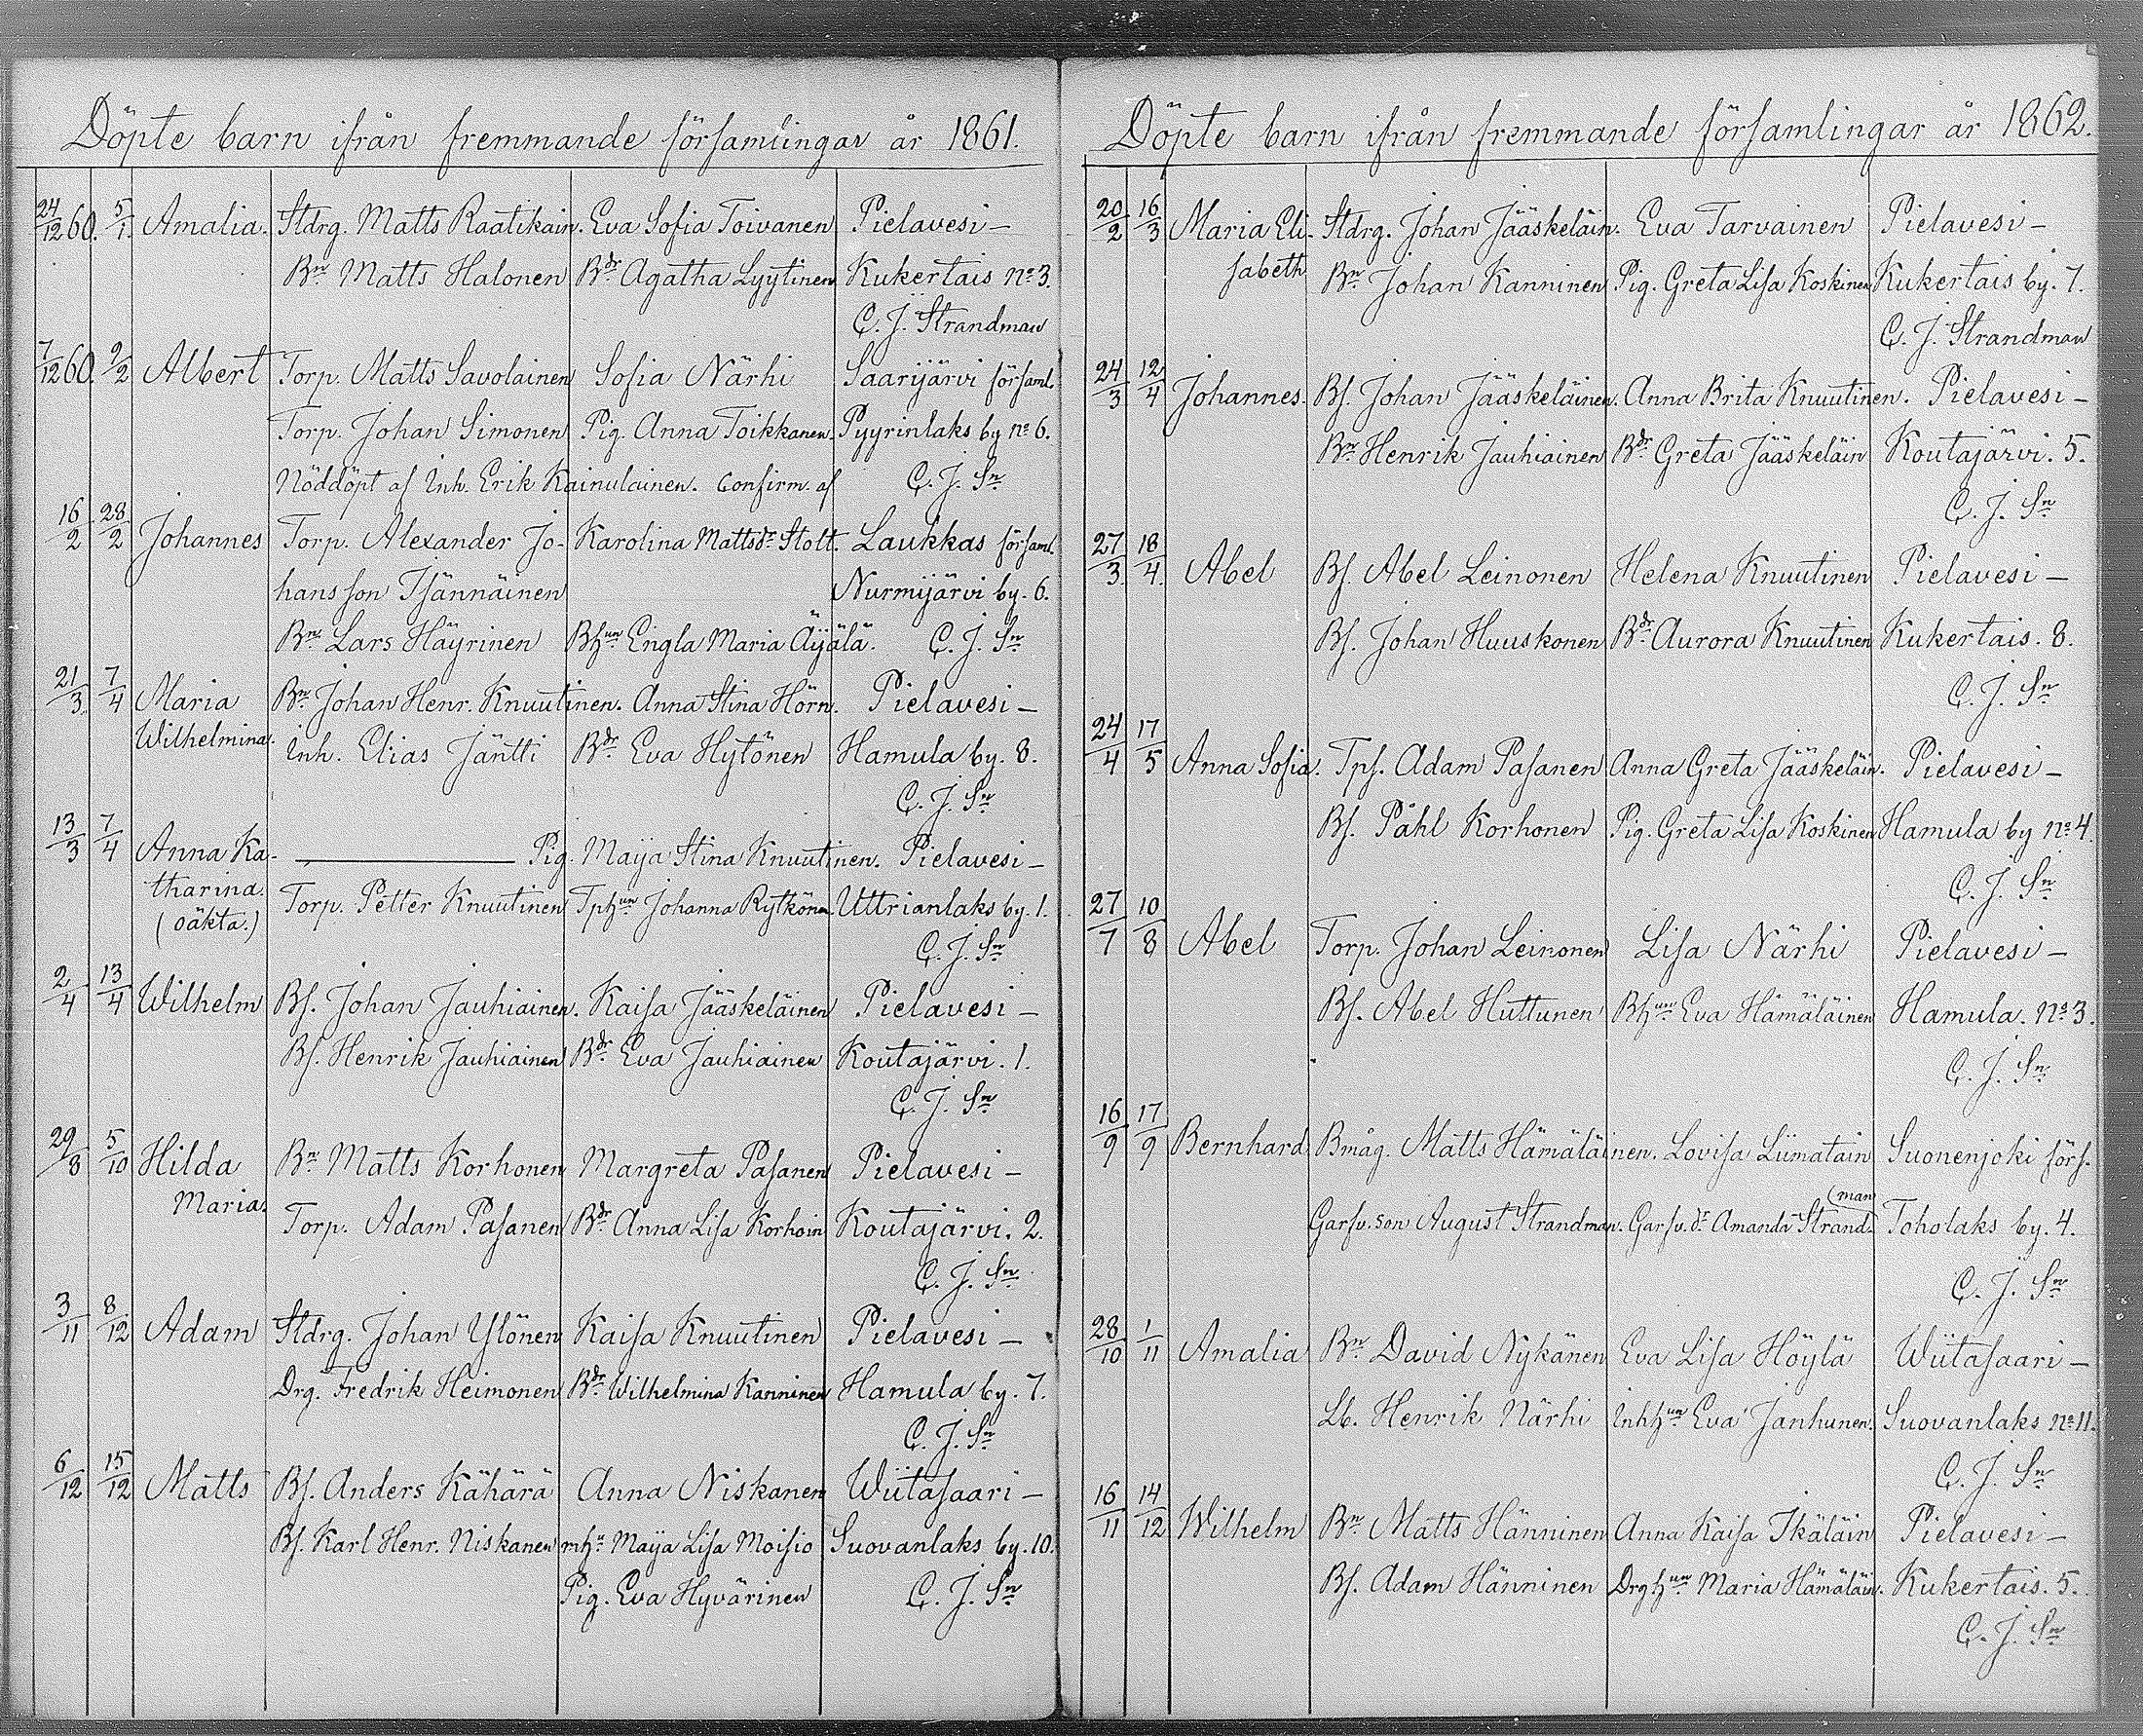 Döpte barn ifrån fremmande församlingar år 1861.
24/12 60. 5/1. Amalia. Stdrg. Matts Raatikain. Eva Sofia Toivanen Pielavesi –
Bn. Matts Halonen Bdr. Agatha Lyytinen Kukertais No 3.
C. J. Strandman
7/12 60. 9/2 Albert Torp. Matts Savolainen Sofia Närhi Saarijärvi församl.
Torp. Johan Simonen Pig. Anna Toikkanen. Pyyrinlaks by No 6.
Nöddöpt af Inh. Erik Kainulainen. Confirm. af C. J. Sn
16/2 28/2 Johannes Torp. Alexander Jo- Karolina Mattsdr Stolt. Laukkas församl.
hansson Isännäinen Nurmijärvi by. 6.
Bn. Lars Häyrinen Bhun Engla Maria Äijälä. C. J. Sn
21/3. 7/4 Maria Bn. Johan Henr. Knuutinen. Anna Stina Hörn. Pielavesi –
Wilhelmina. Inh. Elias Jäntti Bdr. Eva Hytönen Hamula by. 8.
C. J. Sn
13/3 7/4 Anna Ka- — Pig. Maija Stina Knuutinen. Pielavesi –
tharina. Torp. Petter Knuutinen Tphun Johanna Rytkönen. Uttrianlaks by. 1.
(oäkta.) C. J. Sn
2/4 13/4 Wilhelm Bs. Johan Jauhiainen. Kaisa Jääskeläinen Pielavesi –
Bs. Henrik Jauhiainen Bdr. Eva Jauhiainen Koutajärvi. 1.
C. J. Sn
29/8 5/10 Hilda Bn. Matts Korhonen Margreta Pasanen Pielavesi –
Maria. Torp. Adam Pasanen Bdr. Anna Lisa Korhoin Koutajärvi. 2.
C. J. Sn
3/11 8/12 Adam Stdrg. Johan Ylönen Kaisa Knuutinen Pielavesi –
Drg. Fredrik Heimonen Bdr. Wilhelmina Kanninen Hamula by. 7.
C. J. Sn
6/12 15/12 Matts Bs. Anders Kähärä Anna Niskanen Wiitasaari –
Bs. Karl Henr. Niskanen mhn Maija Lisa Moisio Suovanlaks by. 10.
Pig. Eva Hyvärinen C. J. Sn
Döpte barn ifrån fremmande församlingar år 1862.
20/2 16/3 Maria Eli- Stdrg. Johan Jääskeläin. Eva Tarvainen Pielavesi –
sabeth Bn. Johan Kanninen Pig. Greta Lisa Koskinen Kukertais by. 7.
C. J. Strandman
24/3 12/4 Johannes. Bs. Johan Jääskeläinen. Anna Brita Knuutinen. Pielavesi –
Bn. Henrik Jauhiainen Bdr. Greta Jääskeläin Koutajärvi. 5.
C. J. Sn
27/3. 18/4. Abel Bs. Abel Leinonen Helena Knuutinen Pielavesi –
Bs. Johan Huuskonen Bdr. Aurora Knuutinen Kukertais. 8.
C. J. Sn
24/4 17/5 Anna Sofia. Tps. Adam Pasanen Anna Greta Jääskeläin. Pielavesi –
Bs. Påhl Korhonen Pig. Greta Lisa Koskinen Hamula by No 4.
C. J. Sn
27/7 10/8 Abel Torp. Johan Leinonen Lisa Närhi Pielavesi –
Bs. Abel Huttunen Bhun Eva Hämäläinen Hamula. No 3.
C. J. Sn
16/9 17/9 Bernhard Bmåg. Matts Hämäläinen. Lovisa Liimatain Suonenjoki förs.
(man
Garfv. son August Strandman. Garfv. dr Amanda Strand- Toholaks by. 4.
C. J. Sn
28/10 1/11 Amalia Bn. David Nykänen Eva Lisa Höylä Wiitasaari –
Lb. Henrik Närhi Inhhun Eva Janhunen. Suovanlaks No 11.
C. J. Sn
16/11 14/12 Wilhelm Bn. Matts Hänninen Anna Kaisa Ikäläin Pielavesi –
Bs. Adam Hänninen Drghun Maria Hämäläin. Kukertais. 5.
C. J. Sn